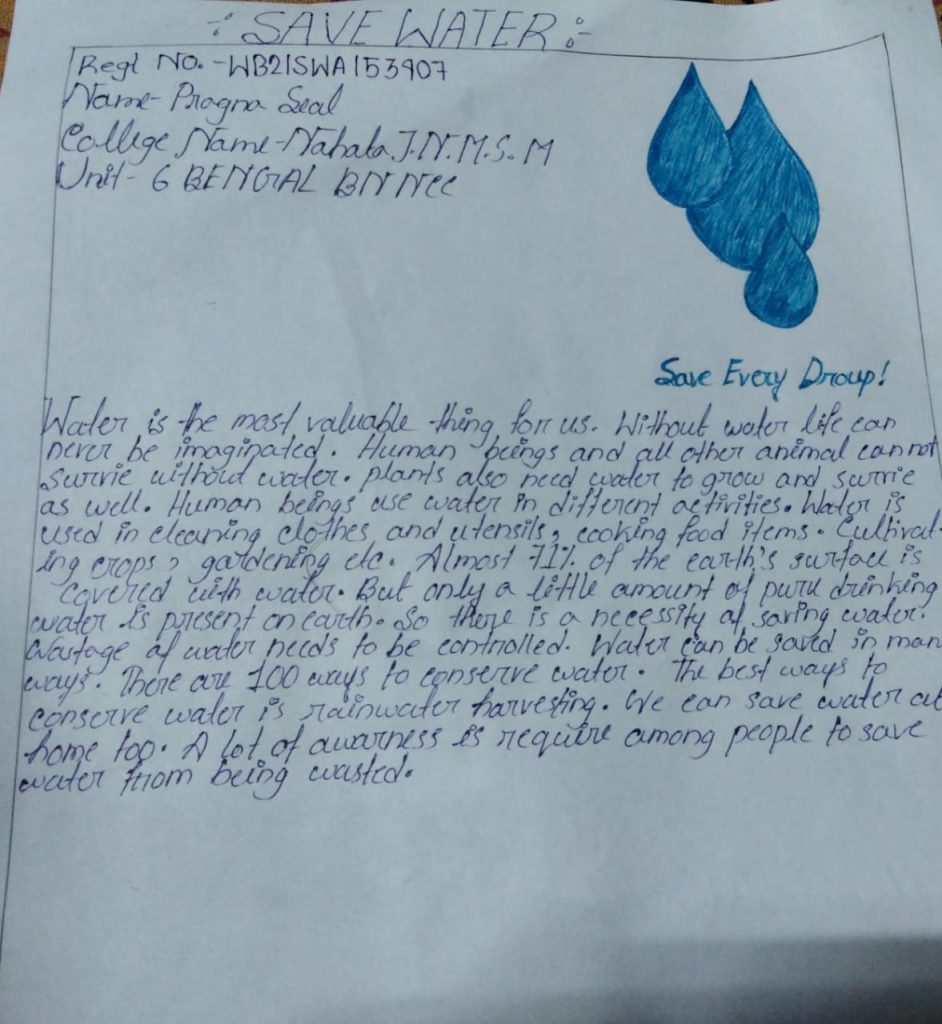 -:- SAVE WATER -:-
Regl No. - WB21SWA153907
Name - Pragna Seal
College Name - Nahata J.N.M.S.M
Unit - 6 BENGAL BN NCC
Save Every Droup!
Water is the most valuable thing for us. Without water life can
never be imaginated. Human beings and all other animal cannot
survie without water. plants also need water to grow and survie
as well. Human beings use water in different activities. Water is
used in cleaning clothes and utensils, cooking food items. Cultivat-
ing crops, gardening etc. Almost 71% of the earth's surface is
covered with water. But only a little amount of pure drinking
water is present on earth. So there is a necessity of saving water.
Wastage of water needs to be controlled. Water can be saved in man
ways. There are 100 ways to conserve water. The best ways to
conserve water is rainwater harvesting. We can save water at
home too. A lot of awarness is require among people to save
water from being wasted.